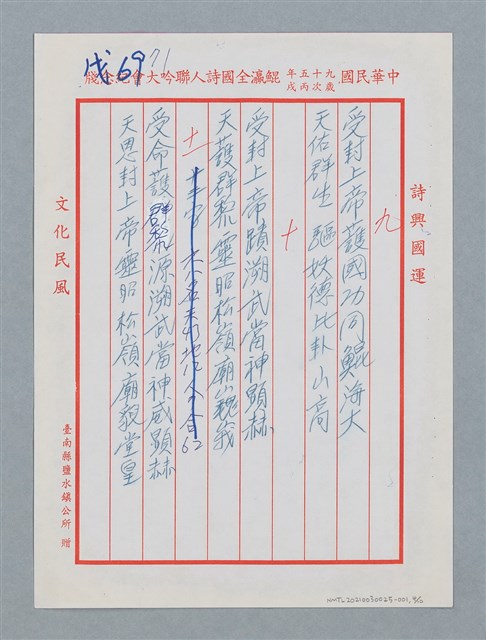 戊69 71
中華民國九十五年歲次丙戌鯤瀛全國詩人聯吟大會紀念牋
詩興國運
九
受封上帝護國功同鯤海大
天佑群生驅妖德比卦山高
十
受封上帝蹟溯武當神顯赫
天護群黎靈昭松嶺廟巍峩
十一
62
受命護群黎源溯武當神威顯赫
天恩封上帝靈昭松嶺廟貌堂皇
文化民風
臺南縣鹽水鎮公所 贈
HMTL20210030025-001, 8/10